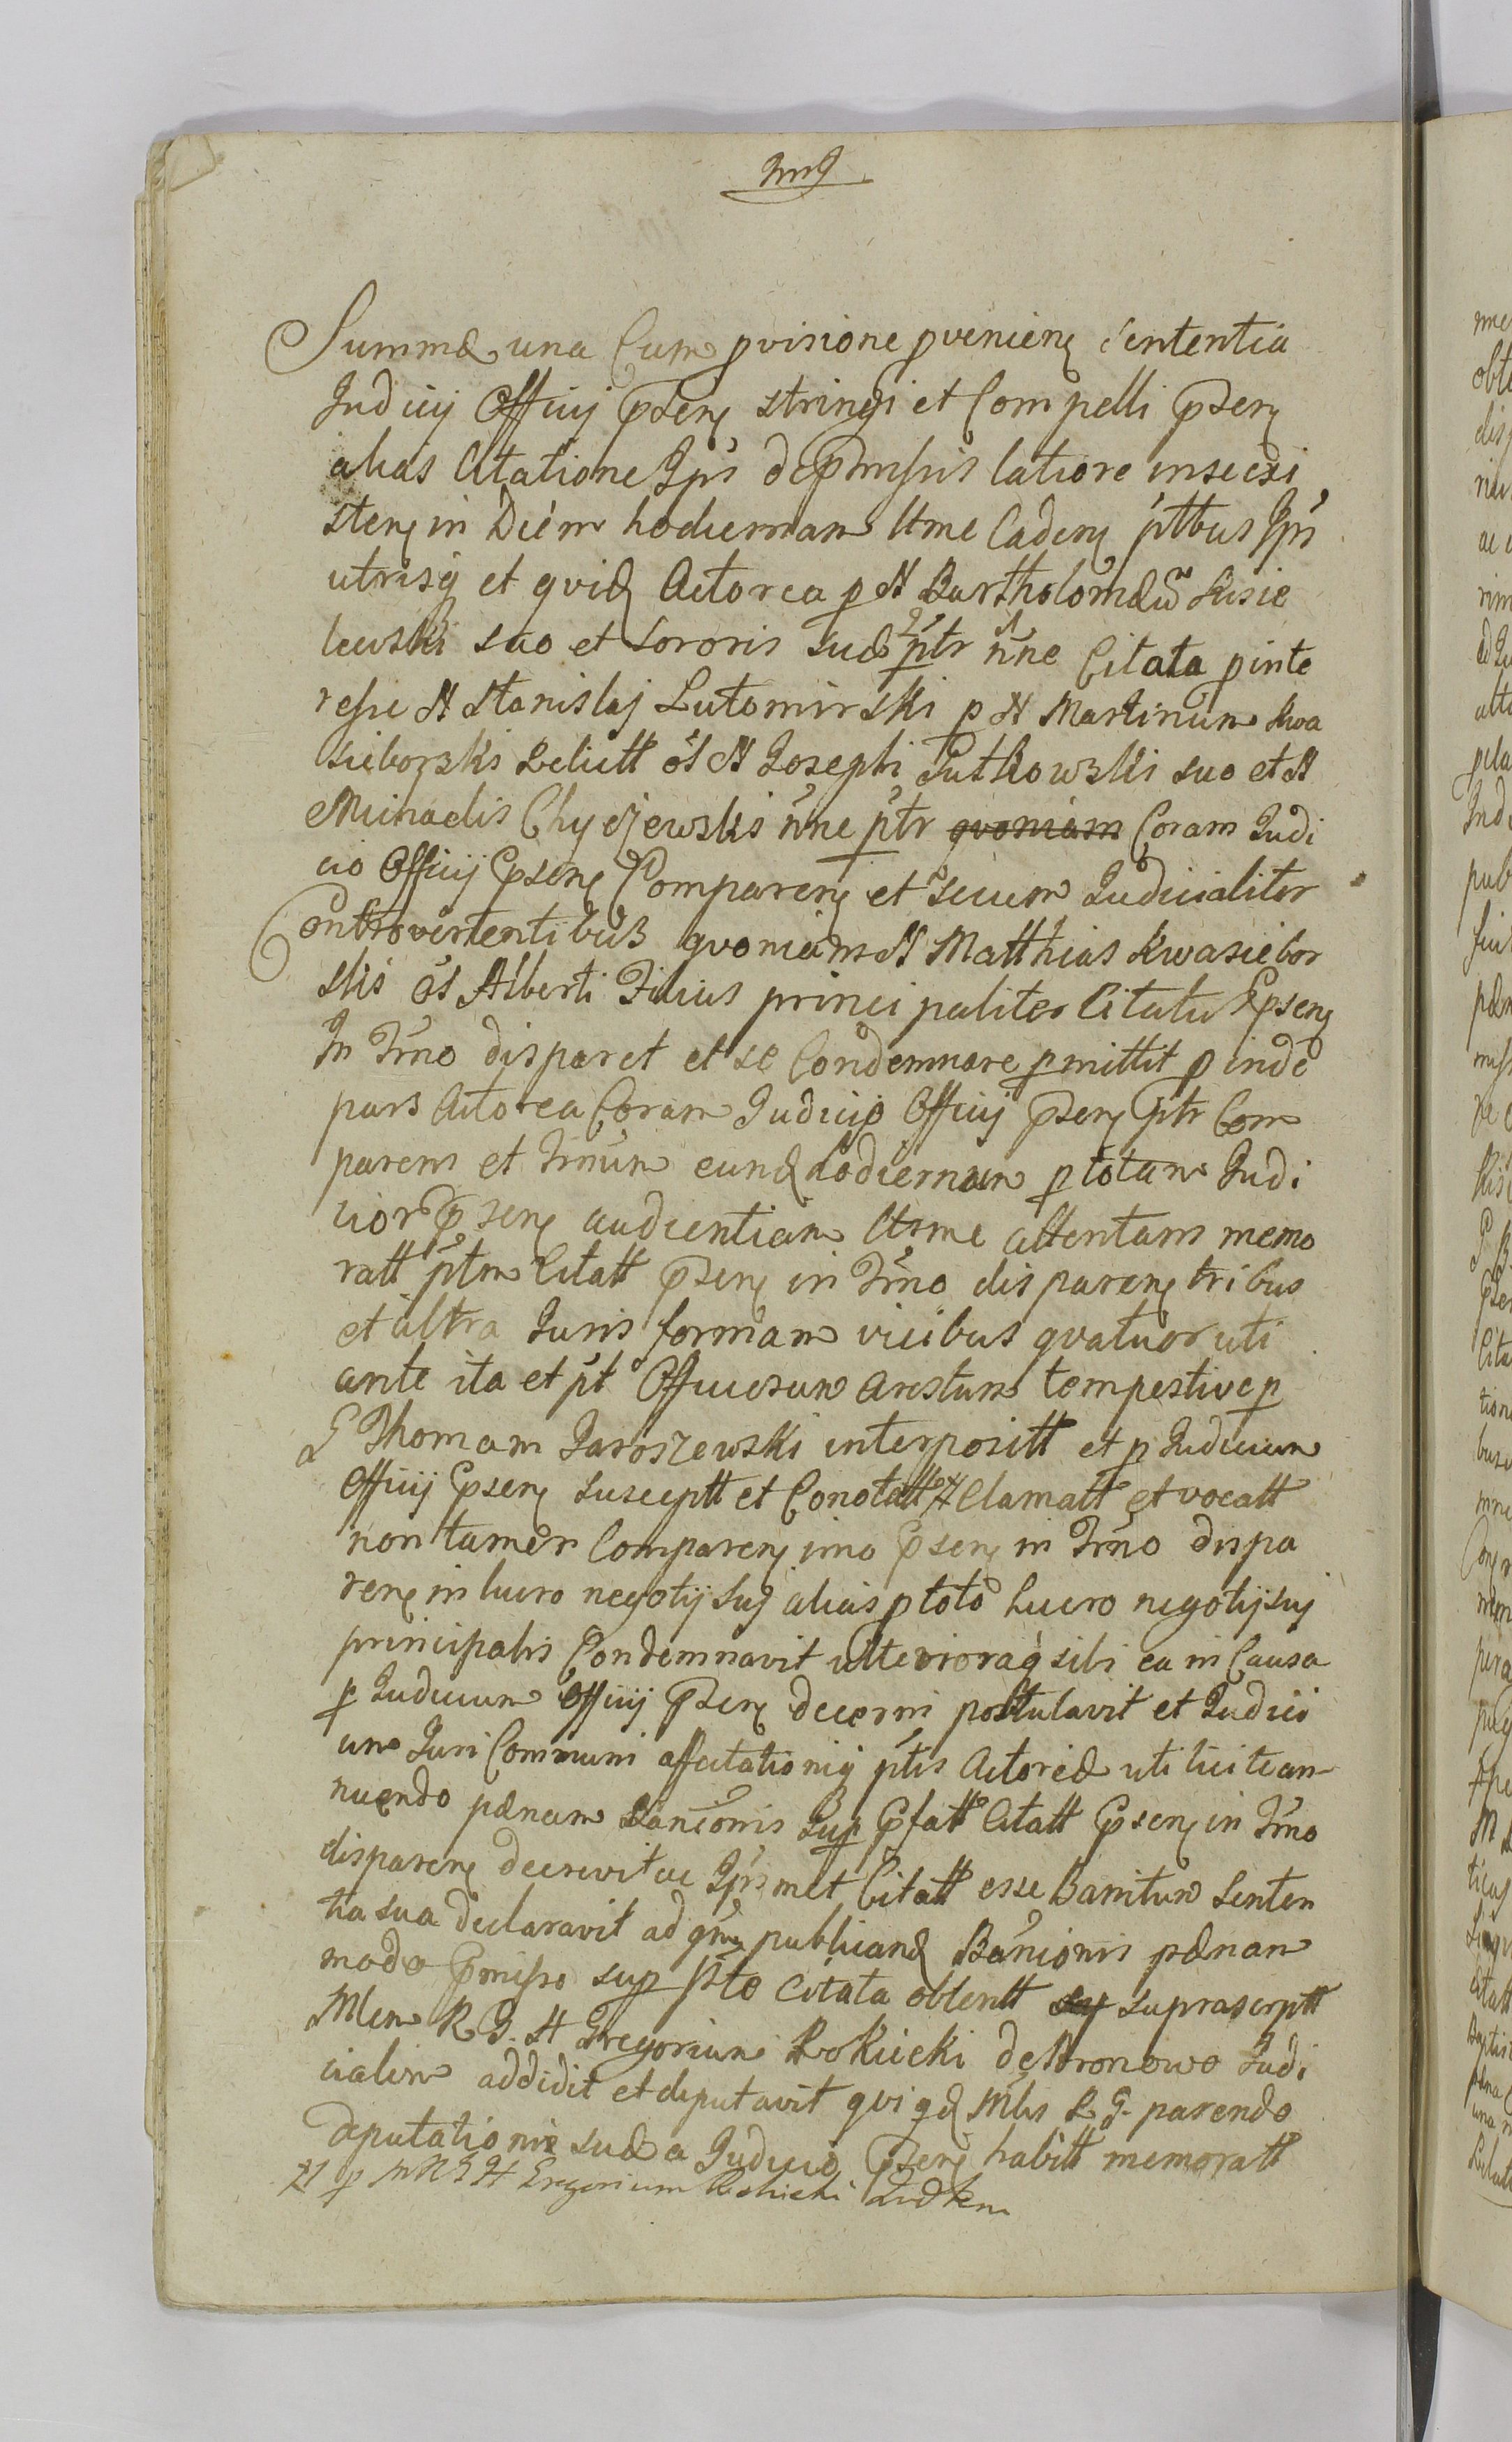 Summæ una Cum pvisione pvenien Sententia
Judicij Officij Psen stringi et Compelli Psen
alias Citatione Jps de Pmissis latiore in se exi
sten in Diem hodiernam ltme Caden ptbus Jps
utrisq et qvid Actorea p N Bartholomæum Kisie
lewski suo et Sororis suæ ptr nne Citata p inte
resse N Stanislaj Lutomirski p N Martinum Kwa
sieborski Relictt ol N Josephi Putkowski suo et N
Michaelis Chyczewskis nne ptr qvoniam Coram Judi
cio Officij Psen Comparen et secum Judicialiter
Controvertentibus qvoniam N Matthias Kwasiebor
skis ol Alberti Filius principaliter Citatu Psen
In Trno disparet et se Condemnare pmittit p inde
pars Actorea Coram Judicio Officij Psen ptr Com
parens et Trnum eund hodiernum p totam Judi
cior Psen audientiam ltme attentam memo
ratt ptm Citatt Psen in Trno disparen tribus
et ultra Juris formam vicibus qvatuor uti
ante ita et pt Officiosum arestum tempestive p
G Thomam Jaroszewski interpositt et p Judicium
Officij Psen susceptt et Conotatt Clamatt et vocatt
non tamen Comparen imo Psen in Trno dispa
ren in lucro negotij suj alias p toto lucro negotij suj
principalis Condemnavit ulterioraq sibi ea in Causa
p Judicium Officij Psen decerni postulavit et Judici
um Juri Communi affectationiq ptis Actoreæ uti licite an
nuendo pænam Banionis sup Pfatt Citatt Psen in Trno
disparen decrevit ac Jpsmet Citatt esse Banitum Senten
tia sua declaravit ad qm publicand Banionis pænam
modo Pmisso sup pte Citata obtentt sup suprascriptt
Mlem R G. H Gregorium Rokicki de Boronowo Judi
cialem addidit et deputavit qvi qd Mlis R G. parendo
deputationi suæ a Judicio Psen habitt memoratt
p M R G H Gregorium Rokicki Judlem